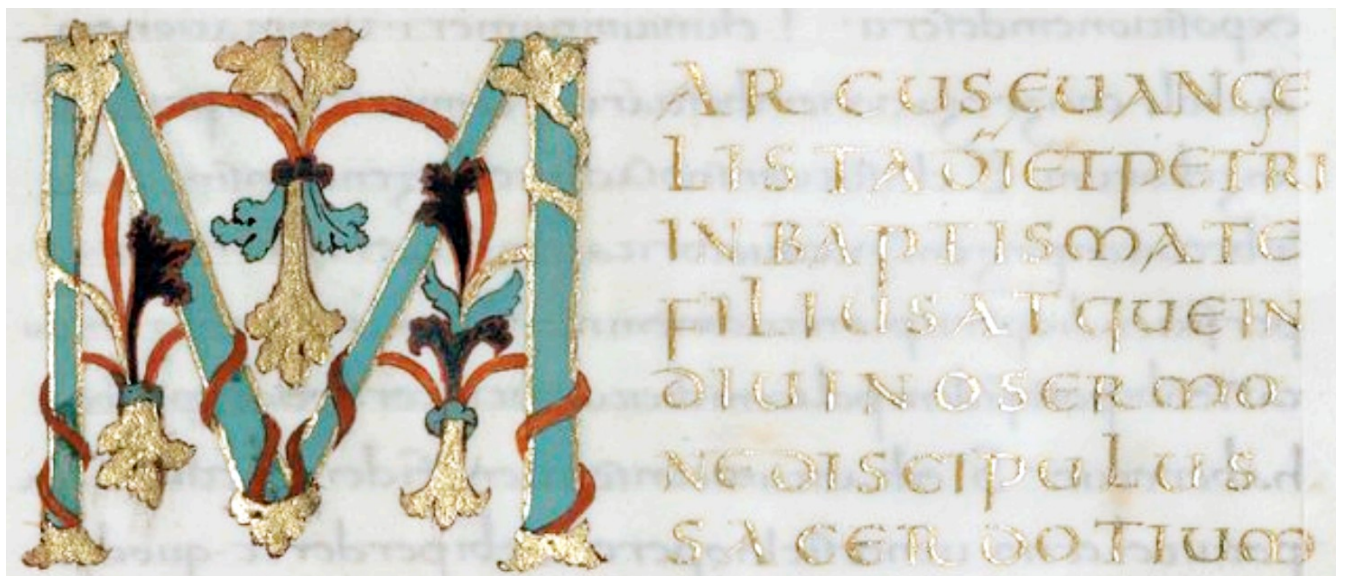 MARCUS EUANGE
LISTA D̄I ET PETRI
IN BAPTISMATE
FILIUS ATQUE IN
DIUINO SERMO
NE DISCIPULUS
SACERDOTIUM